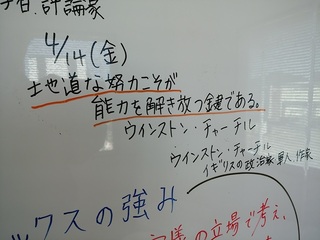 評論家
4/14(金)
地道な努力こそが
能力を解き放つ鍵である。
ウインストン・チャーチル
ウィンストン・チャーチル
イギリスの政治家、軍人、作家
ックスの強み
の立場で考え、